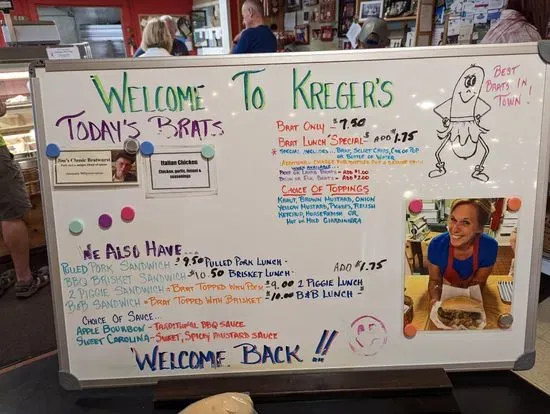 Welcome To Kreger's
Today's Brats
Joe's Classic Bratwurst
Italian Chicken
Chicken, garlic, fennel &
seasonings
Brat Only - $7.50
Brat Lunch "Special" - Add $1.75
* Special Includes... Brat, Select Chips, Can of Pop
or Bottle of Water
(Additional Charge for
When Available...
Beef or Lamb Brats - Add $1.00
Bison or Elk Brats - Add $2.00
Choice of Toppings
Kraut, Brown Mustard, Onion
Yellow Mustard, Pickles, Relish
Ketchup, Horseradish or
Hot or Mild Giardiniera
Best
Brats In
Town!
We Also Have...
Pulled Pork Sandwich - $9.50 Pulled Pork Lunch -
BBQ Brisket Sandwich - $10.50 Brisket Lunch -
2 Piggie Sandwich - Brat Topped with Pork $9.00 2 Piggie Lunch
B&B Sandwich - Brat Topped with Brisket $10.00 B&B Lunch
Add $1.75
Choice of Sauce...
Apple Bourbon - Traditional BBQ Sauce
Sweet Carolina - Sweet, Spicy Mustard Sauce
Welcome Back!!